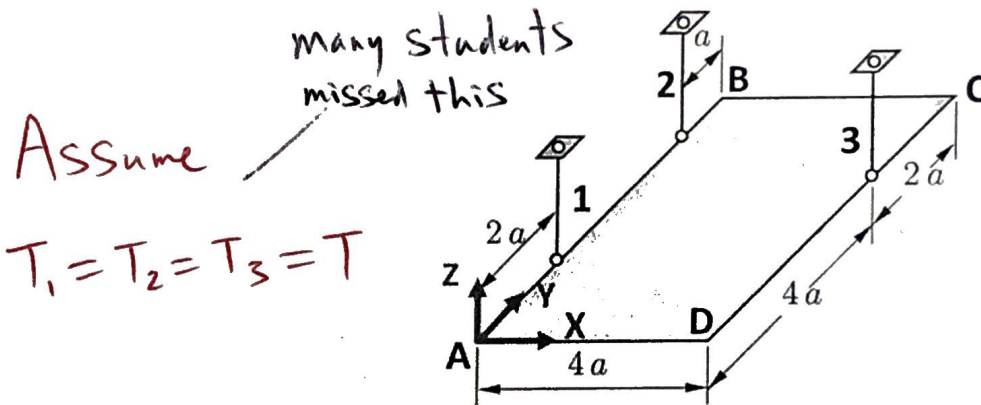 many students
missed this
Assume
T₁ = T₂ = T₃ = T
a
2
B
C
3
1
2a
2a
Z
Y
4a
X
D
A
4a